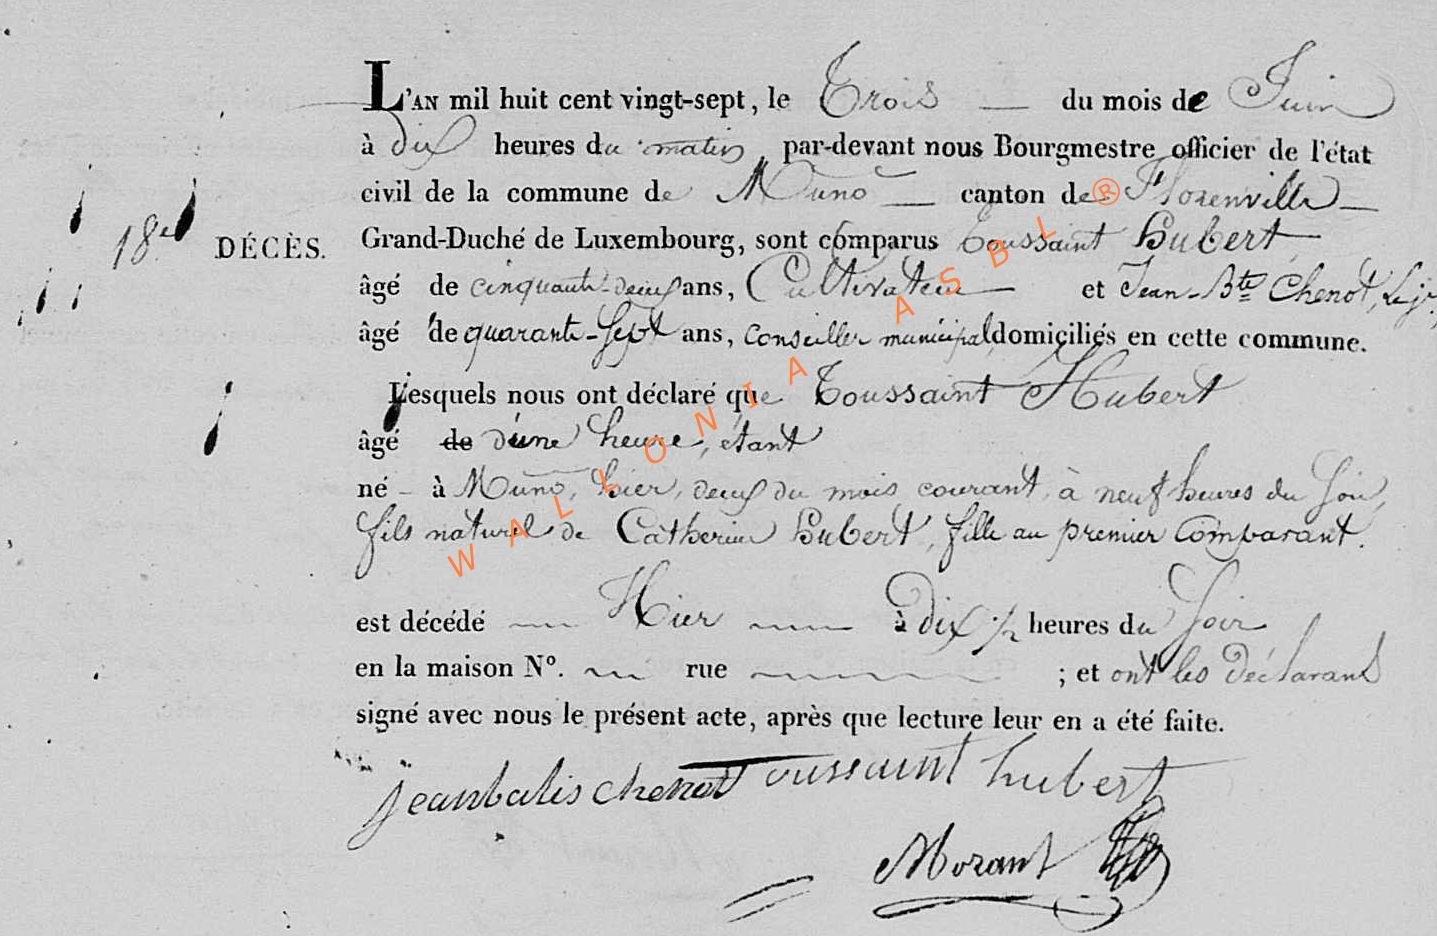 L'AN mil huit cent vingt-sept, le Trois — du mois de Juin
à dix heures du matin par-devant nous Bourgmestre officier de l'état
civil de la commune de Muno — canton de Florenville —
18e DÉCÈS. Grand-Duché de Luxembourg, sont comparus Toussaint Hubert
âgé de cinquante-deux ans, Cultivateur — et Jean-Bte Chenot, Le j.
âgé de quarante-sept ans, Conseiller municipal domiciliés en cette commune.
Lesquels nous ont déclaré que Toussaint Hubert
âgé de d'une heure, étant
né à Muno, hier, deux du mois courant, à neuf heures du soir,
fils naturel de Catherine Hubert, fille au premier Comparant.
est décédé Hier à dix 1/2 heures du Soir
en la maison N°. rue ; et ont les Déclarants
signé avec nous le présent acte, après que lecture leur en a été faite.
jeanbatis chenot Toussaint hubert
Morant
WALLONIA ASBL ®